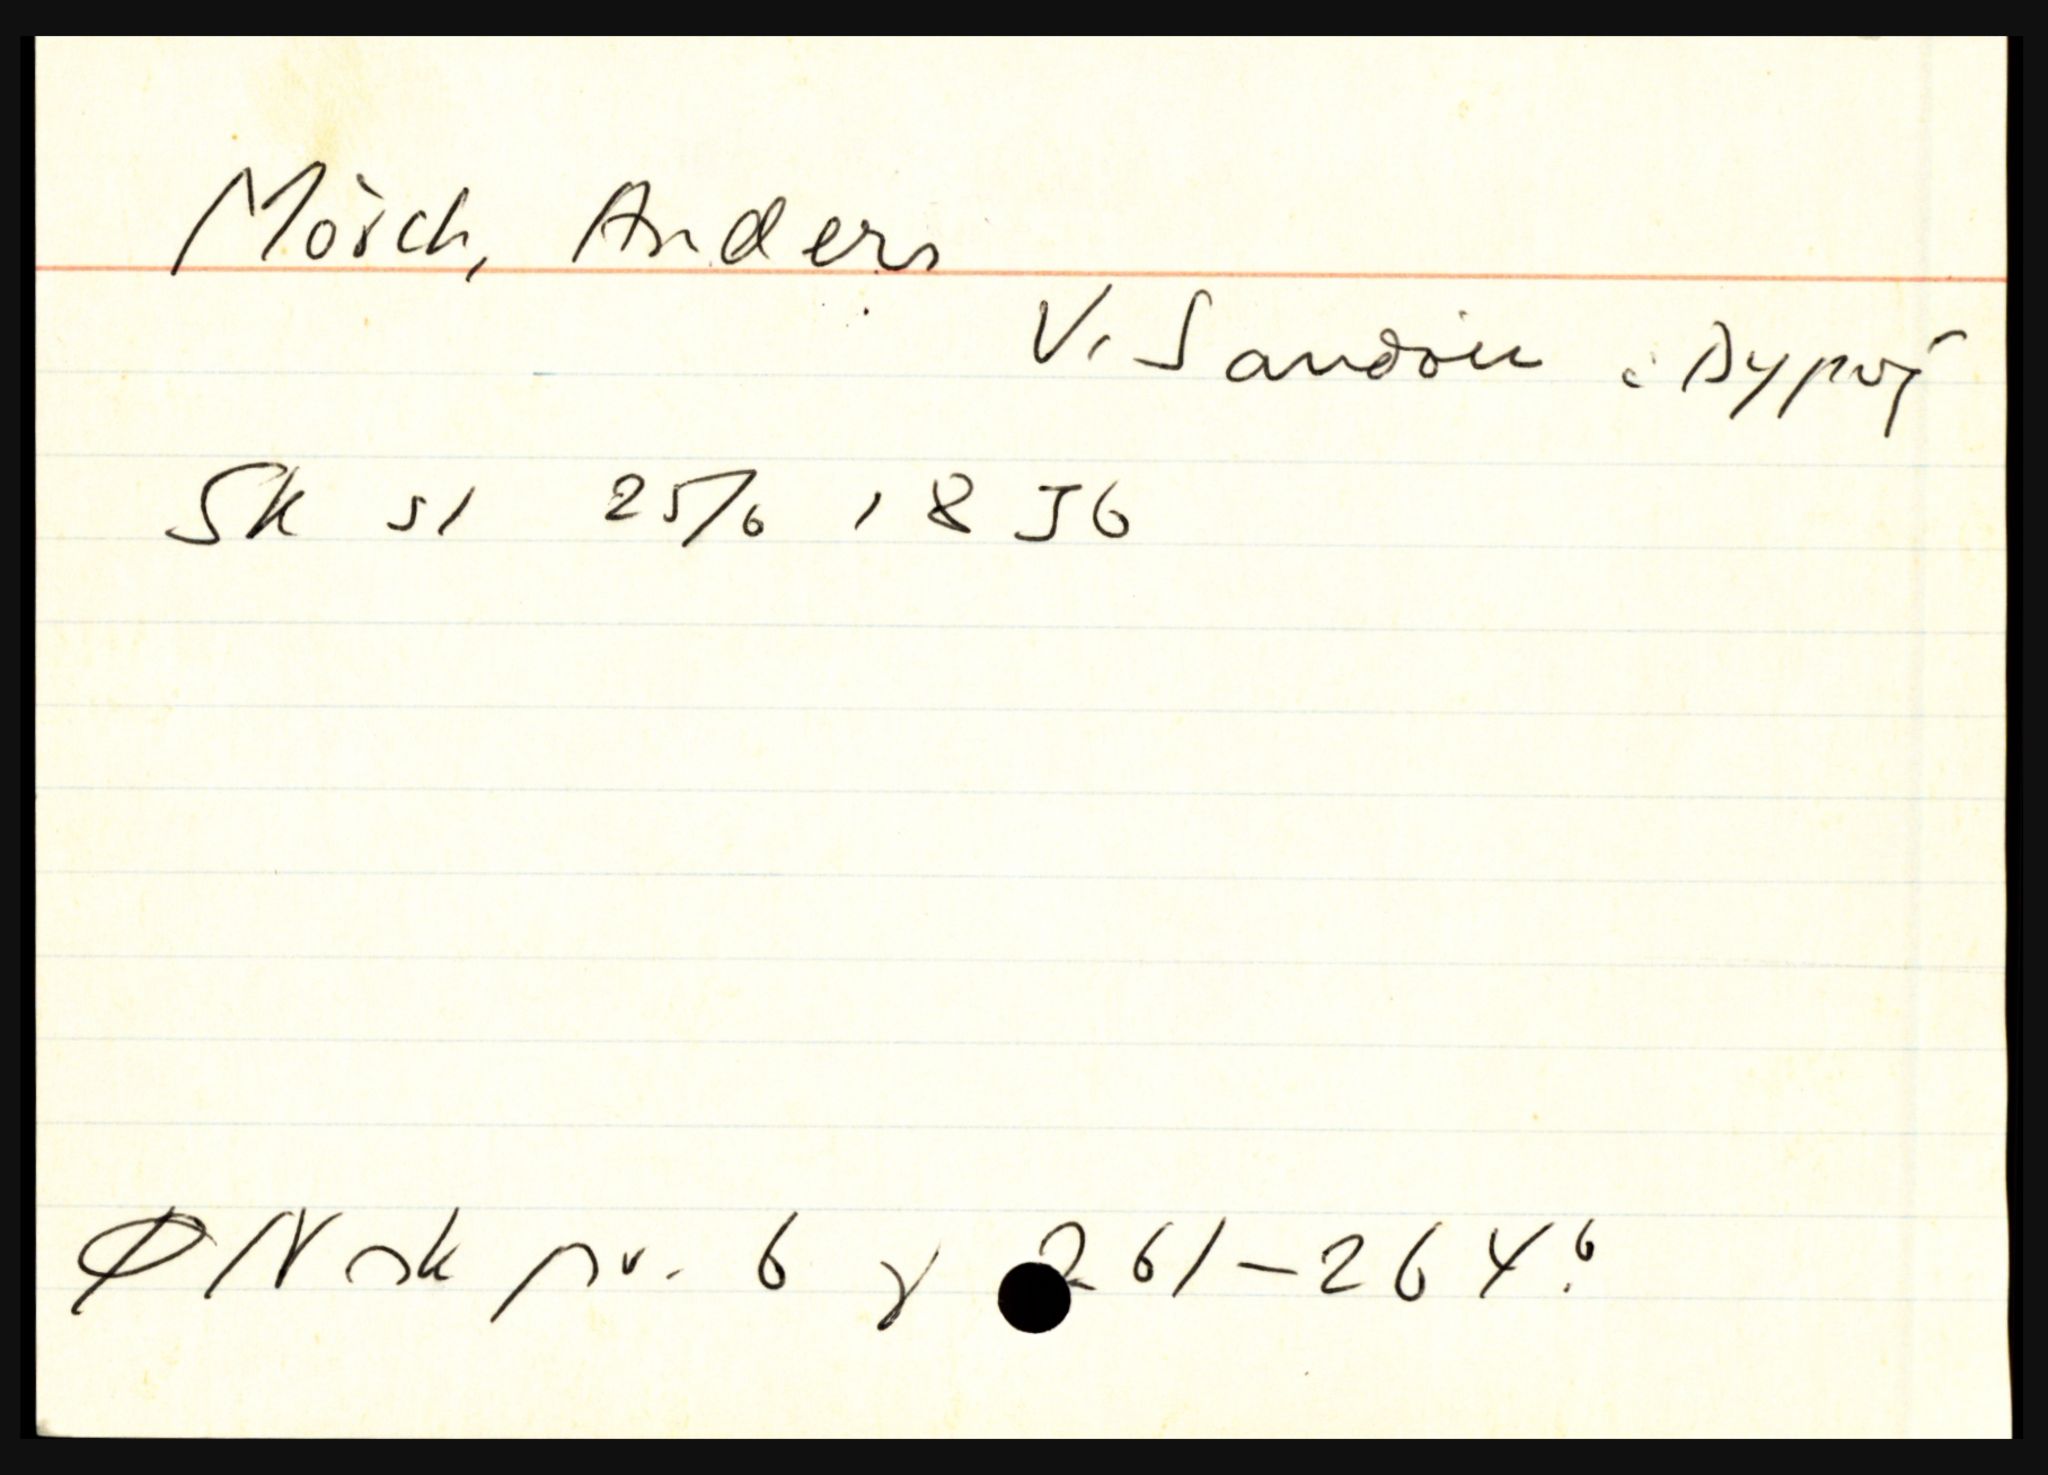 Mörch, Anders
V. Sandøen i Dypvåg
Sk sl 25/6 1836
ØN sk pr. 6 y 261-264⁶